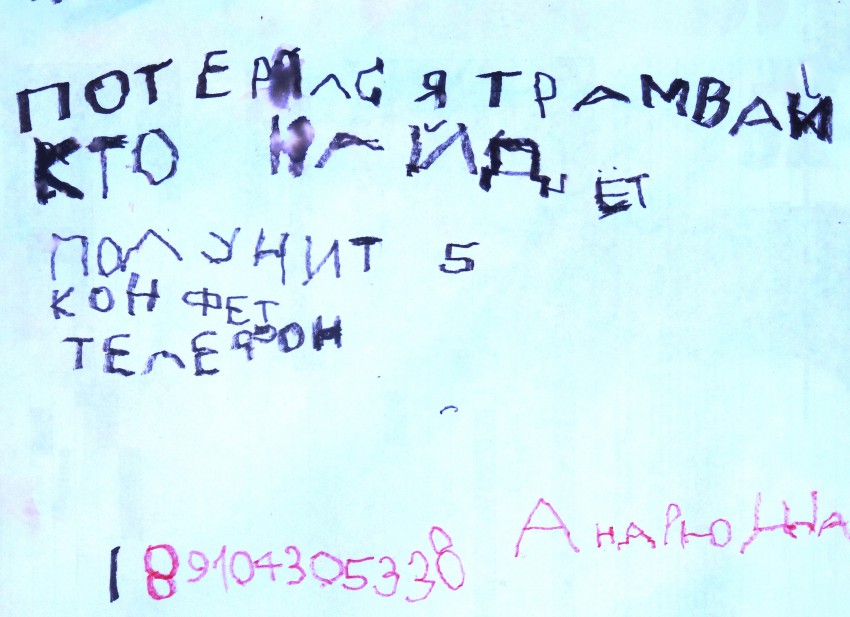 ПОТЕРЯЛСЯ ТРАМВАЙ
КТО НАЙДЁТ
ПОЛУЧИТ 5
КОНФЕТ
ТЕЛЕФОН
1 89104305338